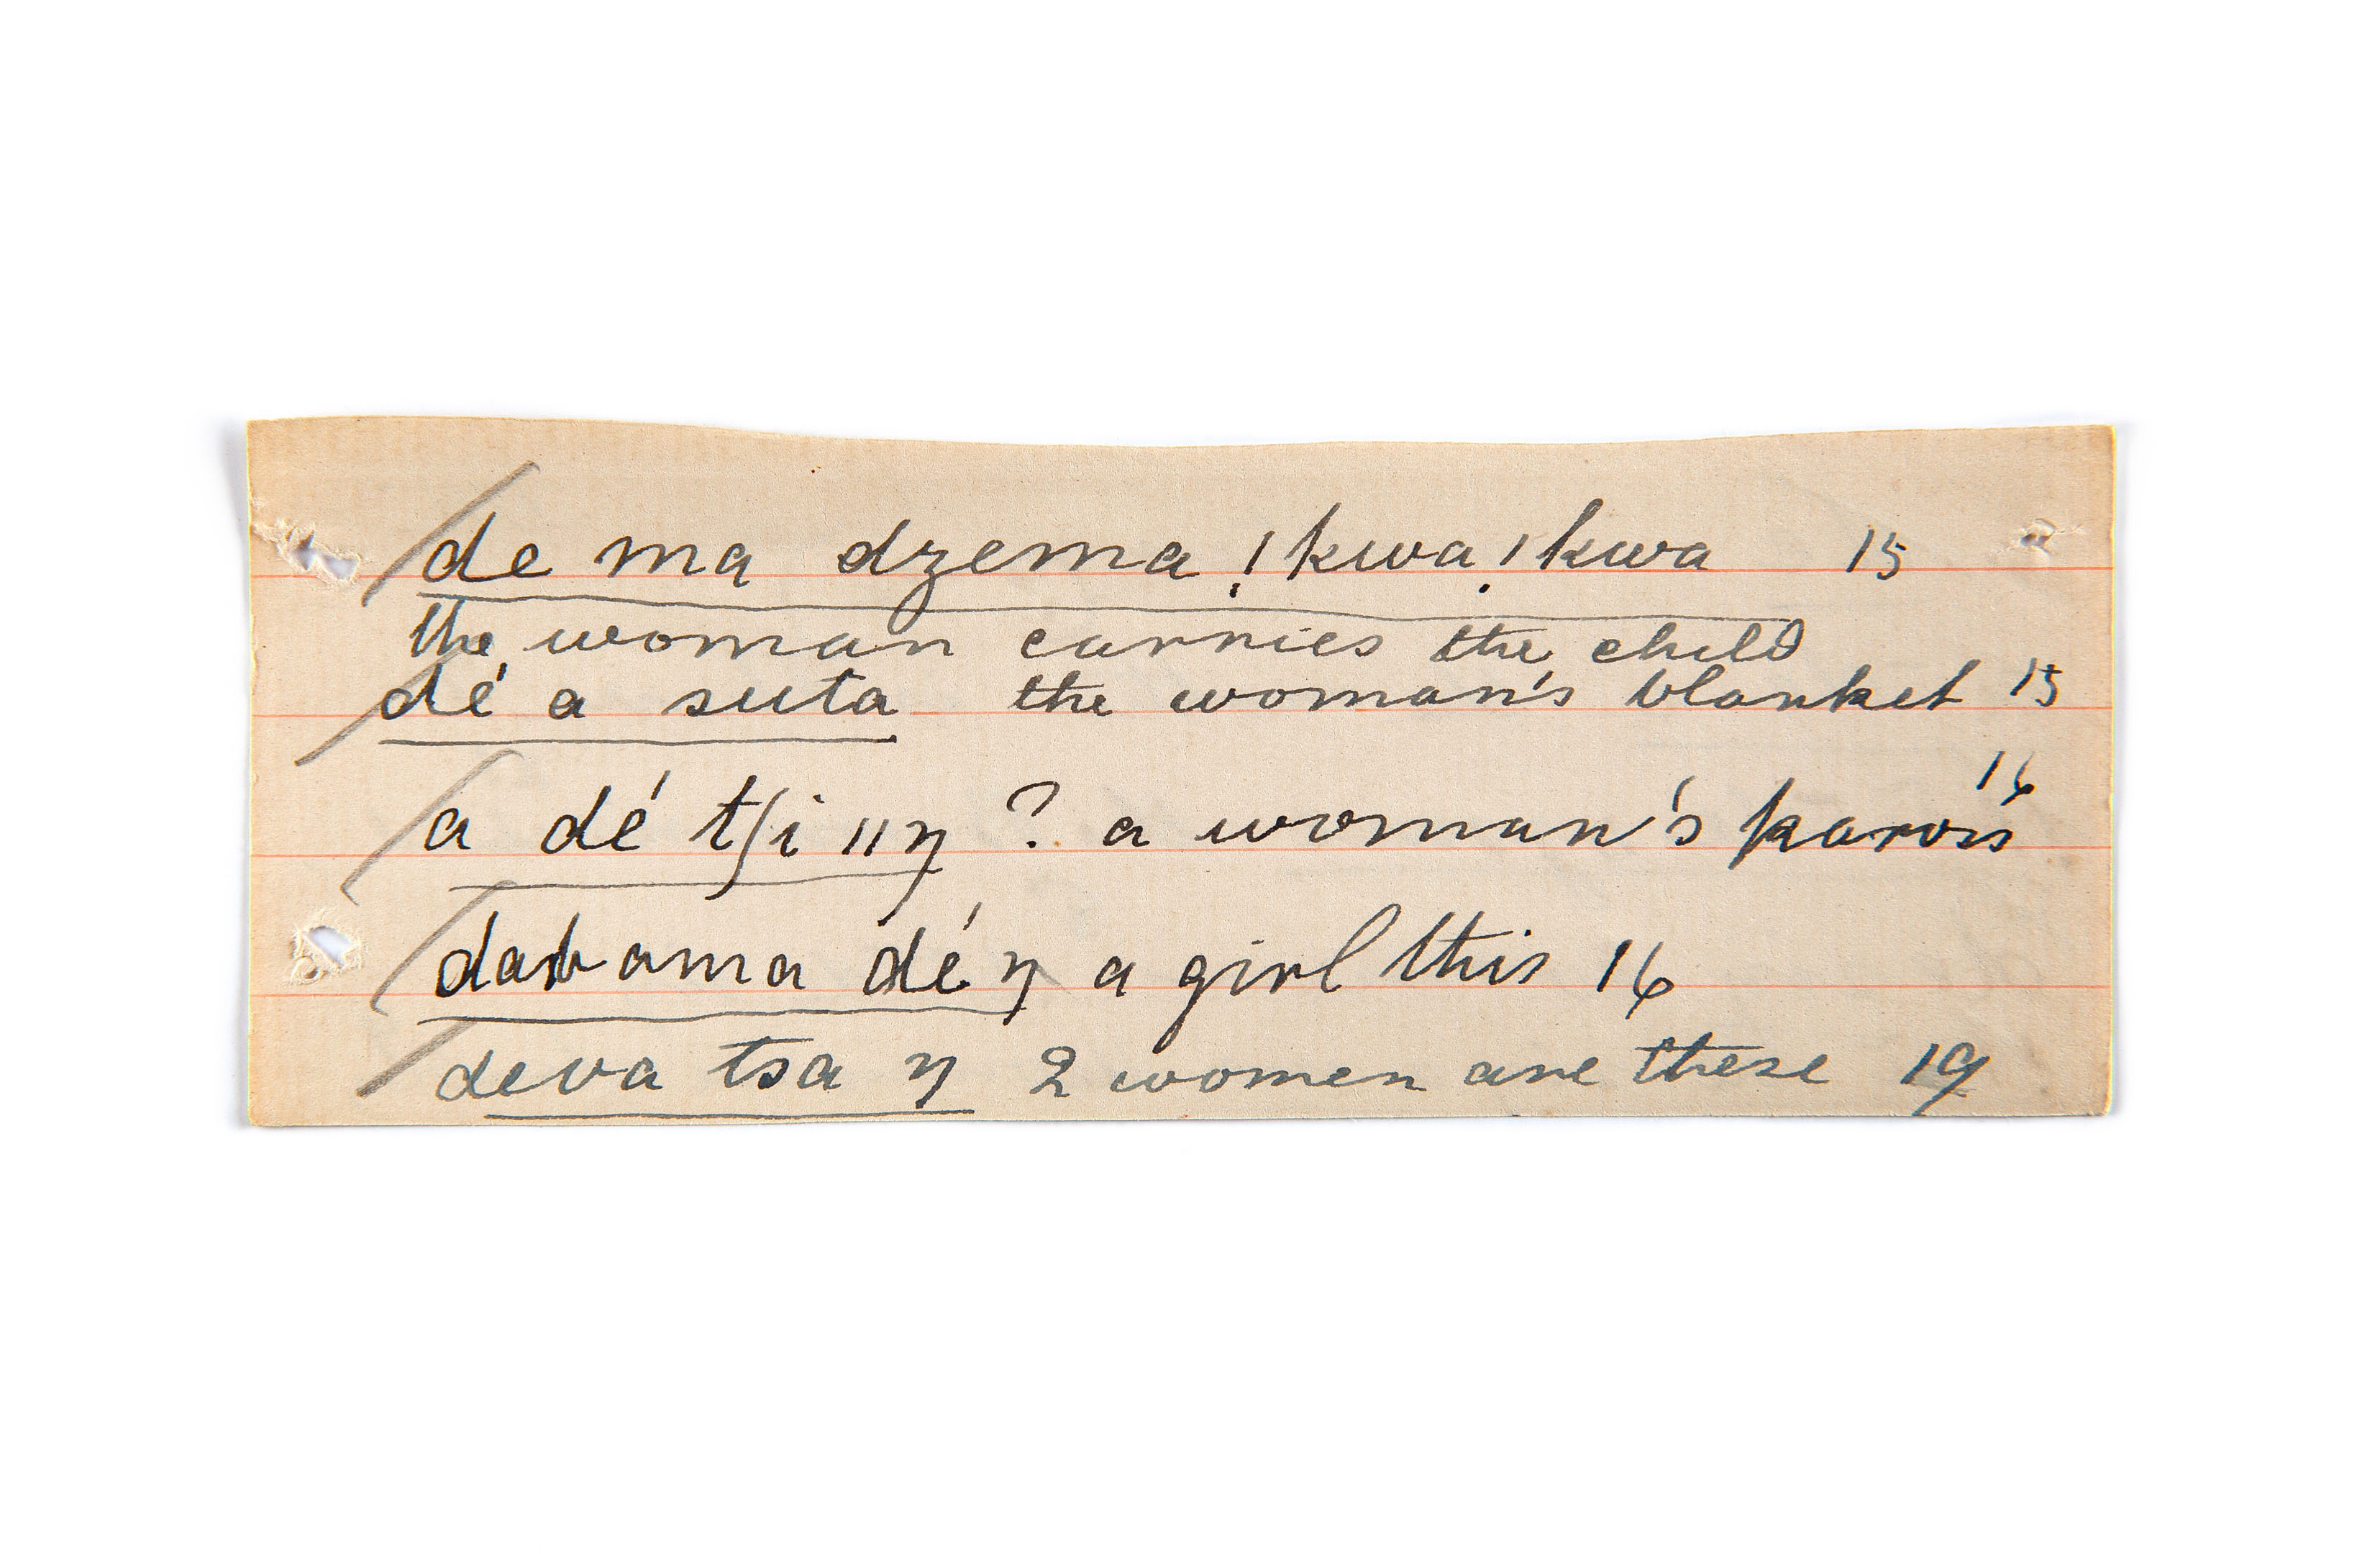 de ma dzema ! kwa ! kwa 15
the woman carries the child
dé a suta the woman's blanket 15
a dé tʃi ǁŋ ? a woman's kaross 16
dabama dé ŋ a girl this 16
deva tsa ŋ 2 women are these 19